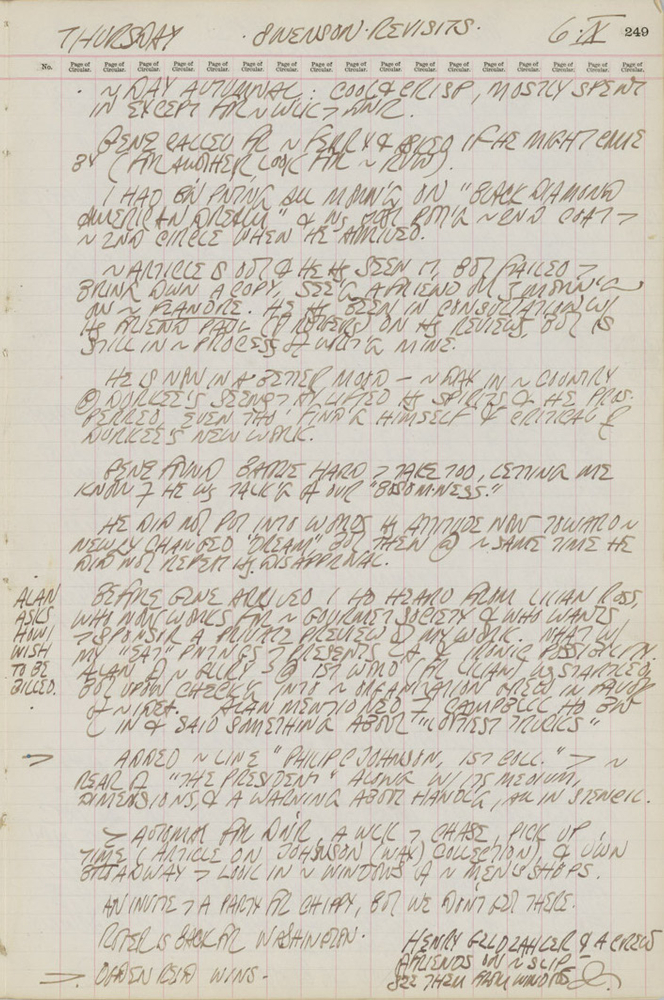 THURSDAY · SWENSON · REVISITS · 6·IX 249
No. Page of Circular. Page of Circular. Page of Circular. Page of Circular. Page of Circular. Page of Circular. Page of Circular. Page of Circular. Page of Circular. Page of Circular. Page of Circular. Page of Circular. Page of Circular. Page of Circular. Page of Circular. Page of Circular. Page of Circular.
· ~ DAY AUTUMNAL: COOL & CRISP, MOSTLY SPENT
IN EXCEPT FR ~ WLK > DNR.
GENE CALLED FR ~ FERRY & ASKED IF HE MIGHT COME
BY (FR ANOTHER LOOK FR ~ RVW).
I HAD BN PNTNG ALL MORN'G ON "BLACK DIAMOND
AMERICAN DREAM" & WS ~ 2ND COAT >
~ 2ND CIRCLE WHEN HE ARRIVED.
~ ARTICLE IS OUT & HE HS SEEN IT, BUT FAILED >
BRING DWN A COPY, SEE'G A FRIEND OF MORN'G
ON ~ . HE HS BEEN IN CONSULTATION W/
HS FRIEND PAUL ON HS REVIEWS, BUT IS
STILL IN ~ PROCESS OF WRIT'G MINE.
HE IS NOW IN A BETTER MOOD — ~ DAY IN ~ COUNTRY
@ DURKEE'S SEEMS > HS SPIRITS & HE
EVEN THO' FIND'G HIMSELF CRITICAL OF
DURKEE'S NEW WORK.
GENE FOUND HARD > TAKE TOO, LETTING ME
KNOW HE WS TALK'G OF OUR "BOSOM-NESS."
HE DID NOT PUT INTO WORDS HS ATTITUDE NOW TOWARD ~
NEWLY CHANGED "DREAM" BUT THEN @ ~ SAME TIME HE
DID NOT REPEAT HS DISAPPROVAL.
BEFORE GENE ARRIVED I HD HEARD FROM LILIAN ROSS,
WHO NOW WORKS FR ~ GOURMET SOCIETY & WHO WANTS
> SPONSOR A PRIVATE PREVIEW OF MY WORK. WHAT W/
MY "EAT" PNTINGS > PRESENTS IRONIC POSSIBILITY.
ALAN ~ @ 1ST WORD FR LILIAN WS STARTLED,
BUT UPON CHECK'G INTO ~ ORGANIZATION GREW IN FAVOR
OF ~ IDEA. ALAN MENTIONED CAMPBELL HD BN
IN & SAID SOMETHING ABOUT "TRUCKS"
ALAN
ASKS
HOW I
WISH
TO BE
BILLED.
→ ADDED ~ LINE "PHILIP C JOHNSON, 1ST COLL." > ~
REAR OF "THE PRESIDENT" ALONG W/ ITS MEDIUM,
DIMENSIONS, & A WARNING ABOUT HANDL'G, ALL IN STENCIL.
> AUTOMAT FR DNR, A WLK > CHASE, PICK UP
TIME (ARTICLE ON JOHNSON (WAX) COLLECTION), & DWN
BROADWAY > LOOK IN ~ WINDOWS OF ~ MEN'S SHOPS.
AN INVITE > A PARTY FR CHIPPY, BUT WE DON'T GET THERE.
IS BACK FR WASHINGTON.
→ OGDEN REID WINS -
HENRY GELDZAHLER & A CREW
OF FRIENDS ON ~ SLIP
SEE THEM FROM WINDOW